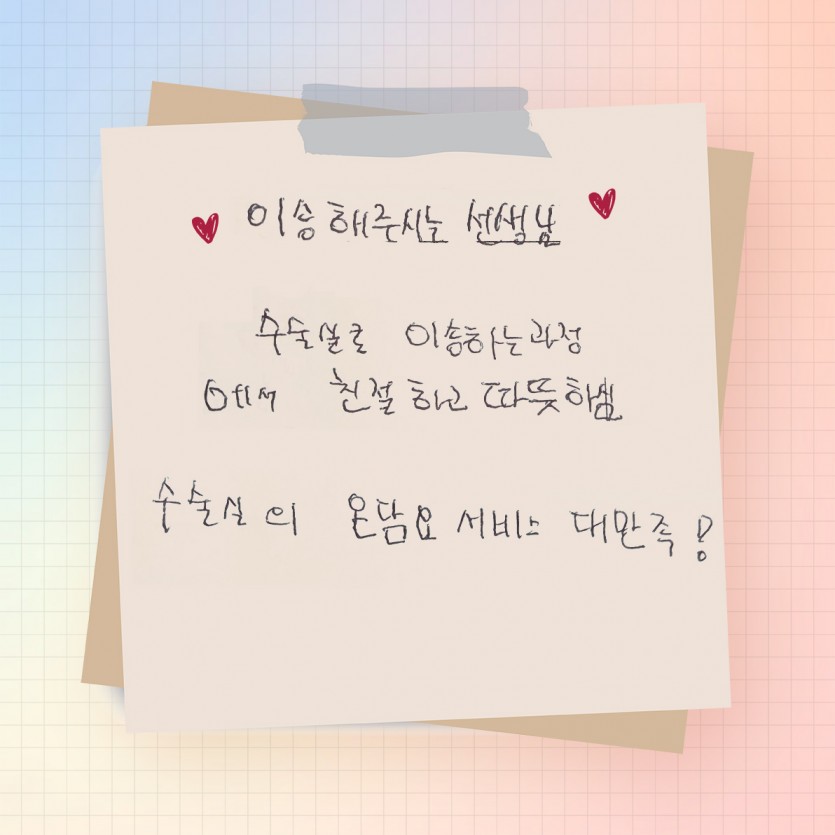 이송해주시는 선생님
수술실로 이송하는과정
에서 친절하고 따뜻하심
수술실의 온담요 서비스 대만족!